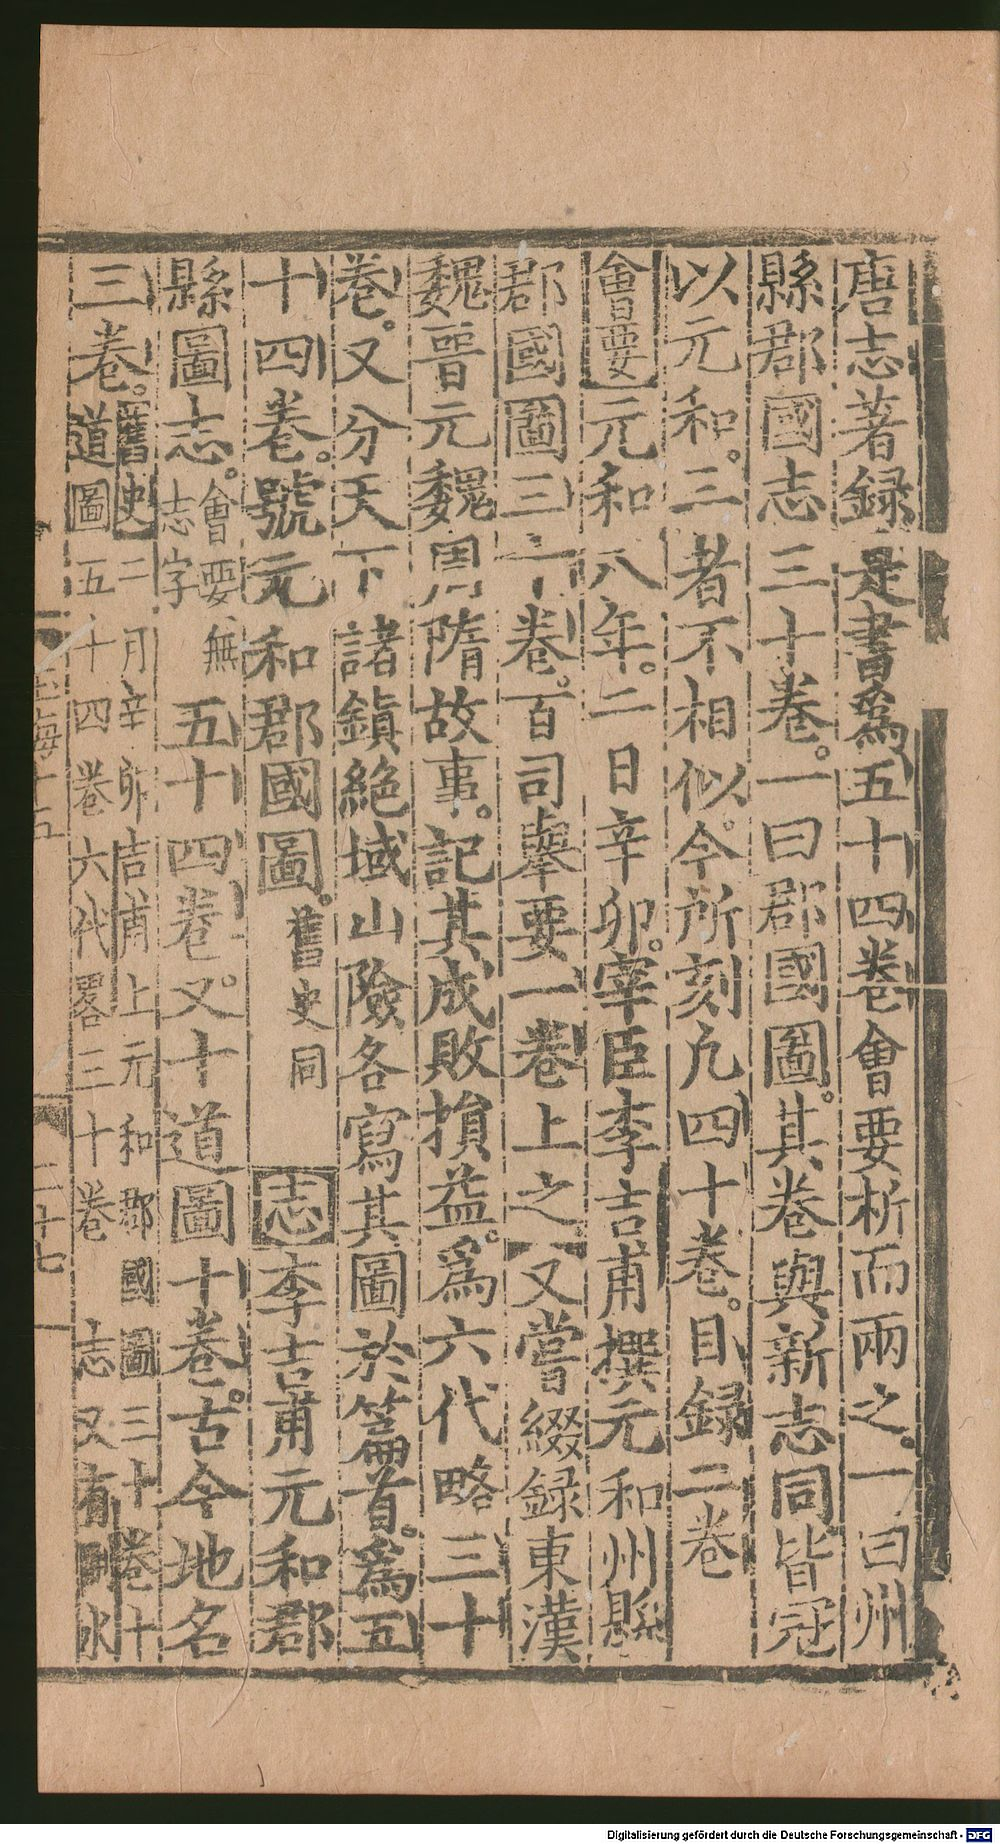 唐志著録是書爲五十四卷會要析而兩之。一曰州
縣郡國志三十卷。一曰郡國圖。其卷與新志同皆冠
以元和。三者不相似。今所刻凢四十卷。目録二卷
會要元和八年。二日辛卯。宰臣李吉甫撰元和州縣
郡國圖三十卷。百司舉要一卷上之又嘗綴録東漢
魏晉元魏周隋故事。記其成敗損益。爲六代略三十
卷。又分天下諸鎮絶域山險各寫其圖於篇首。爲五
十四卷。號元和郡國圖。舊史同 志李吉甫元和郡
縣圖志。會要無志字五十四卷。又十道圖十卷。古今地名
三卷。舊史二月辛卯吉甫上元和郡國圖三十卷十
道圖五十四卷六代畧三十卷 志又有水
玉海十五
二十七
Digitalisierung gefördert durch die Deutsche Forschungsgemeinschaft - DFG